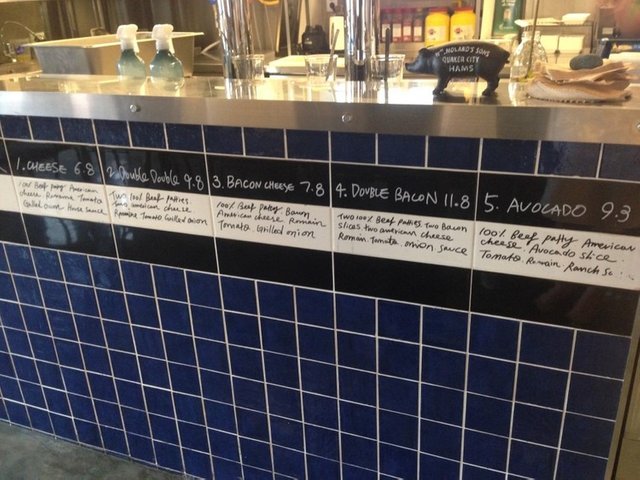 Wm MOLAND'S SONS
QUAKER CITY
HAMS
1. CHEESE 6.8
100% Beef patty American
cheese Romaine Tomato
Grilled onion House sauce
2. Double Double 9.8
Two 100% Beef patties
two american cheese
Romaine Tomato Grilled onion
3. BACON CHEESE 7.8
100% Beef Patty Bacon
American cheese Romain
Tomato. Grilled onion
4. DOUBLE BACON 11.8
Two 100% Beef Patties Two Bacon
slices two american cheese
Romain. Tomato. onion sauce
5. AVOCADO 9.3
100% Beef patty American
cheese. Avocado slice
Tomato. Romain Ranch